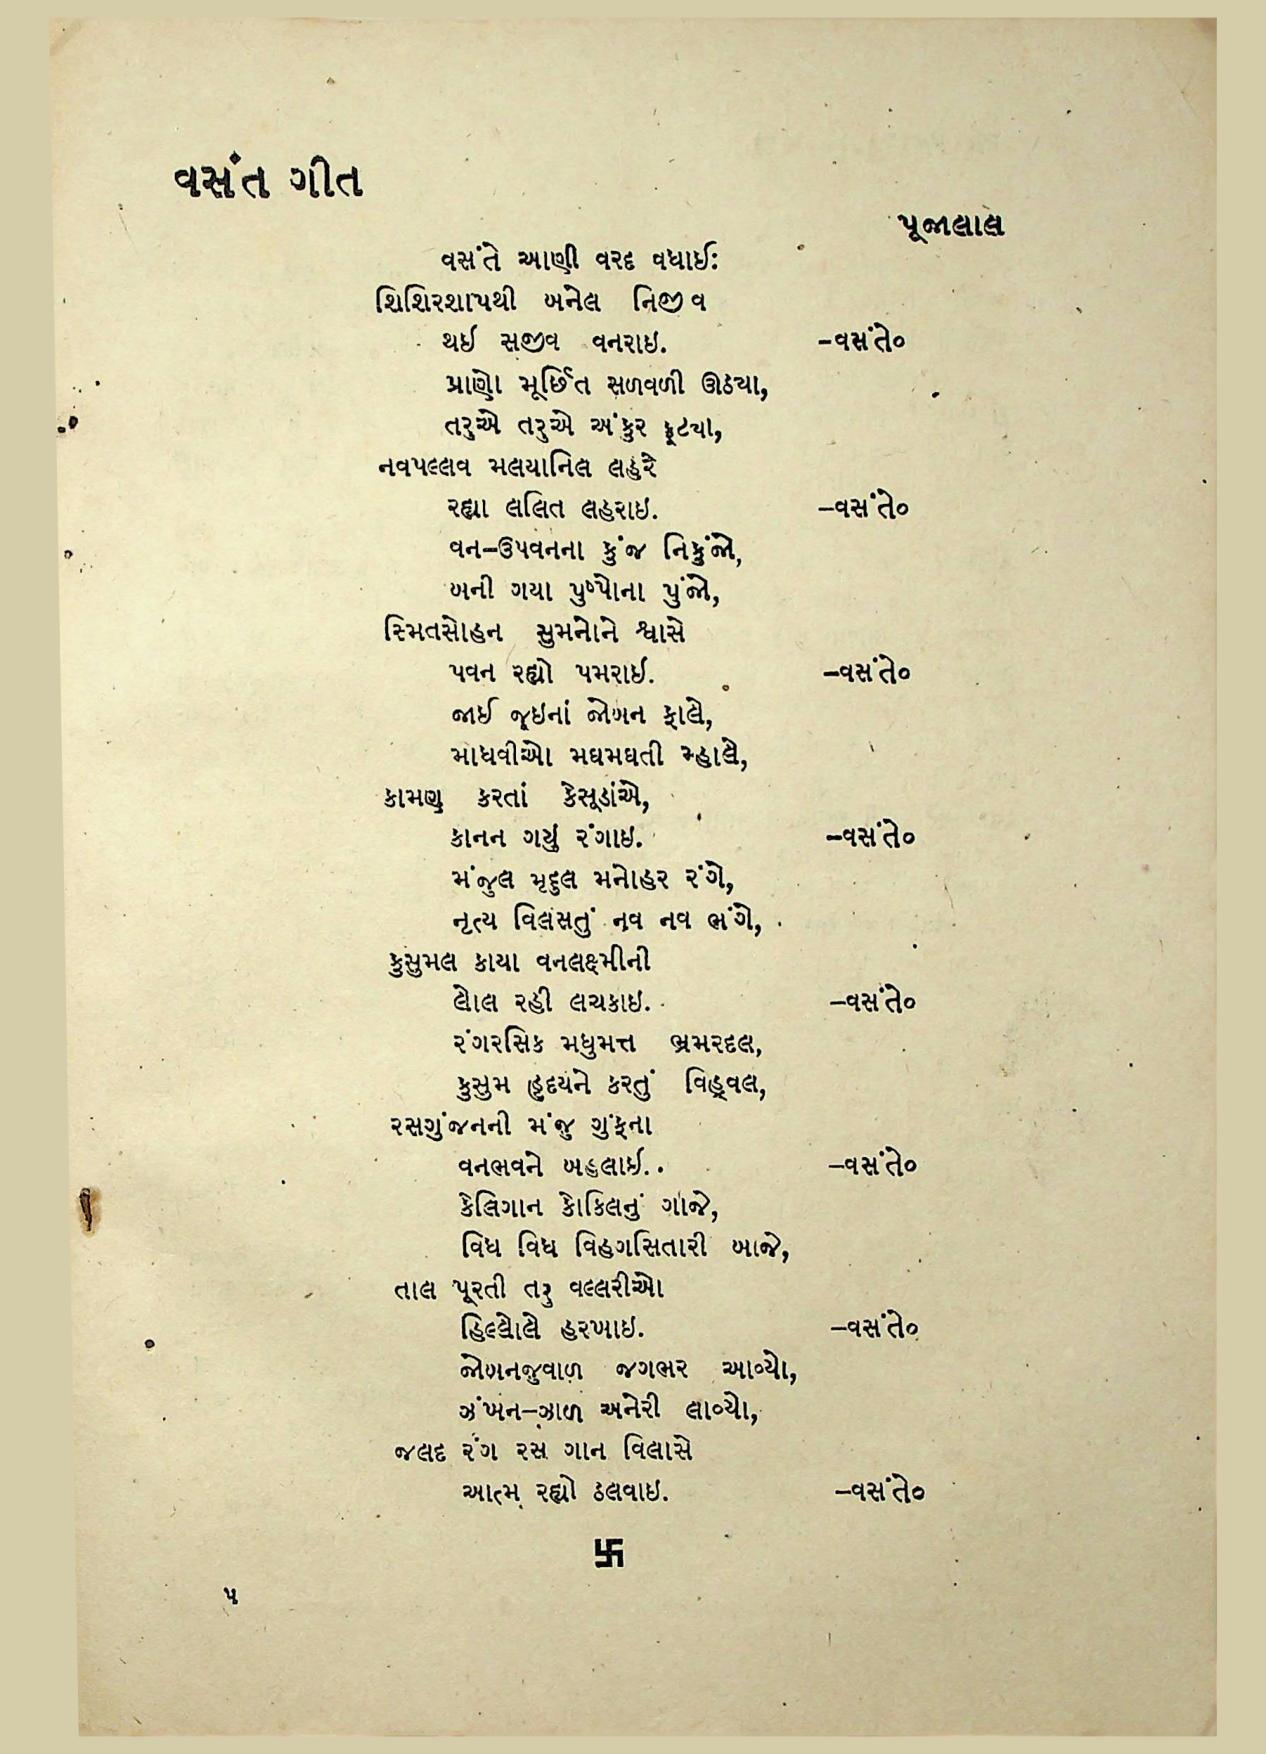 વસંત ગીત
પૂજાલાલ
વસંતે આણી વરદ વધાઈઃ
શિશિરશાપથી બનેલ નિર્જીવ
થઈ સજીવ વનરાઇ. –વસંતે૦
પ્રાણો મૂર્છિત સળવળી ઊઠ્યા,
તરુએ તરુએ અંકુર ફૂટ્યા,
નવપલ્લવ મલયાનિલ લહરે
રહ્યા લલિત લહરાઇ. –વસંતે૦
વન–ઉપવનના કુંજ નિકુંજો,
બની ગયા પુષ્પોના પુંજો,
સ્મિતસોહન સુમનોને શ્વાસે
પવન રહ્યો પમરાઈ. –વસંતે૦
જાઈ જૂઇનાં જોબન ફાલે,
માધવીઓ મઘમઘતી મ્હાલે,
કામણ કરતાં કેસૂડાંએ,
કાનન ગયું રંગાઇ. –વસંતે૦
મંજુલ મૃદુલ મનોહર રંગે,
નૃત્ય વિલસતું નવ નવ ભંગે,
કુસુમલ કાયા વનલક્ષ્મીની
લોલ રહી લચકાઇ. –વસંતે૦
રંગરસિક મધુમત્ત ભ્રમરદલ,
કુસુમ હૃદયને કરતું વિહ્વલ,
રસગુંજનની મંજુ ગુંફના
વનભવને બહલાઈ. –વસંતે૦
કેલિગાન કોકિલનું ગાજે,
વિધ વિધ વિહગસિતારી બાજે,
તાલ પૂરતી તરુ વલ્લરીઓ
હિલ્લોલે હરખાઇ. –વસંતે૦
જોબનજુવાળ જગભર આવ્યો,
ઝંખન–ઝાળ અનેરી લાવ્યો,
જલદ રંગ રસ ગાન વિલાસે
આત્મ રહ્યો ઠલવાઇ. –વસંતે૦
卐
૫